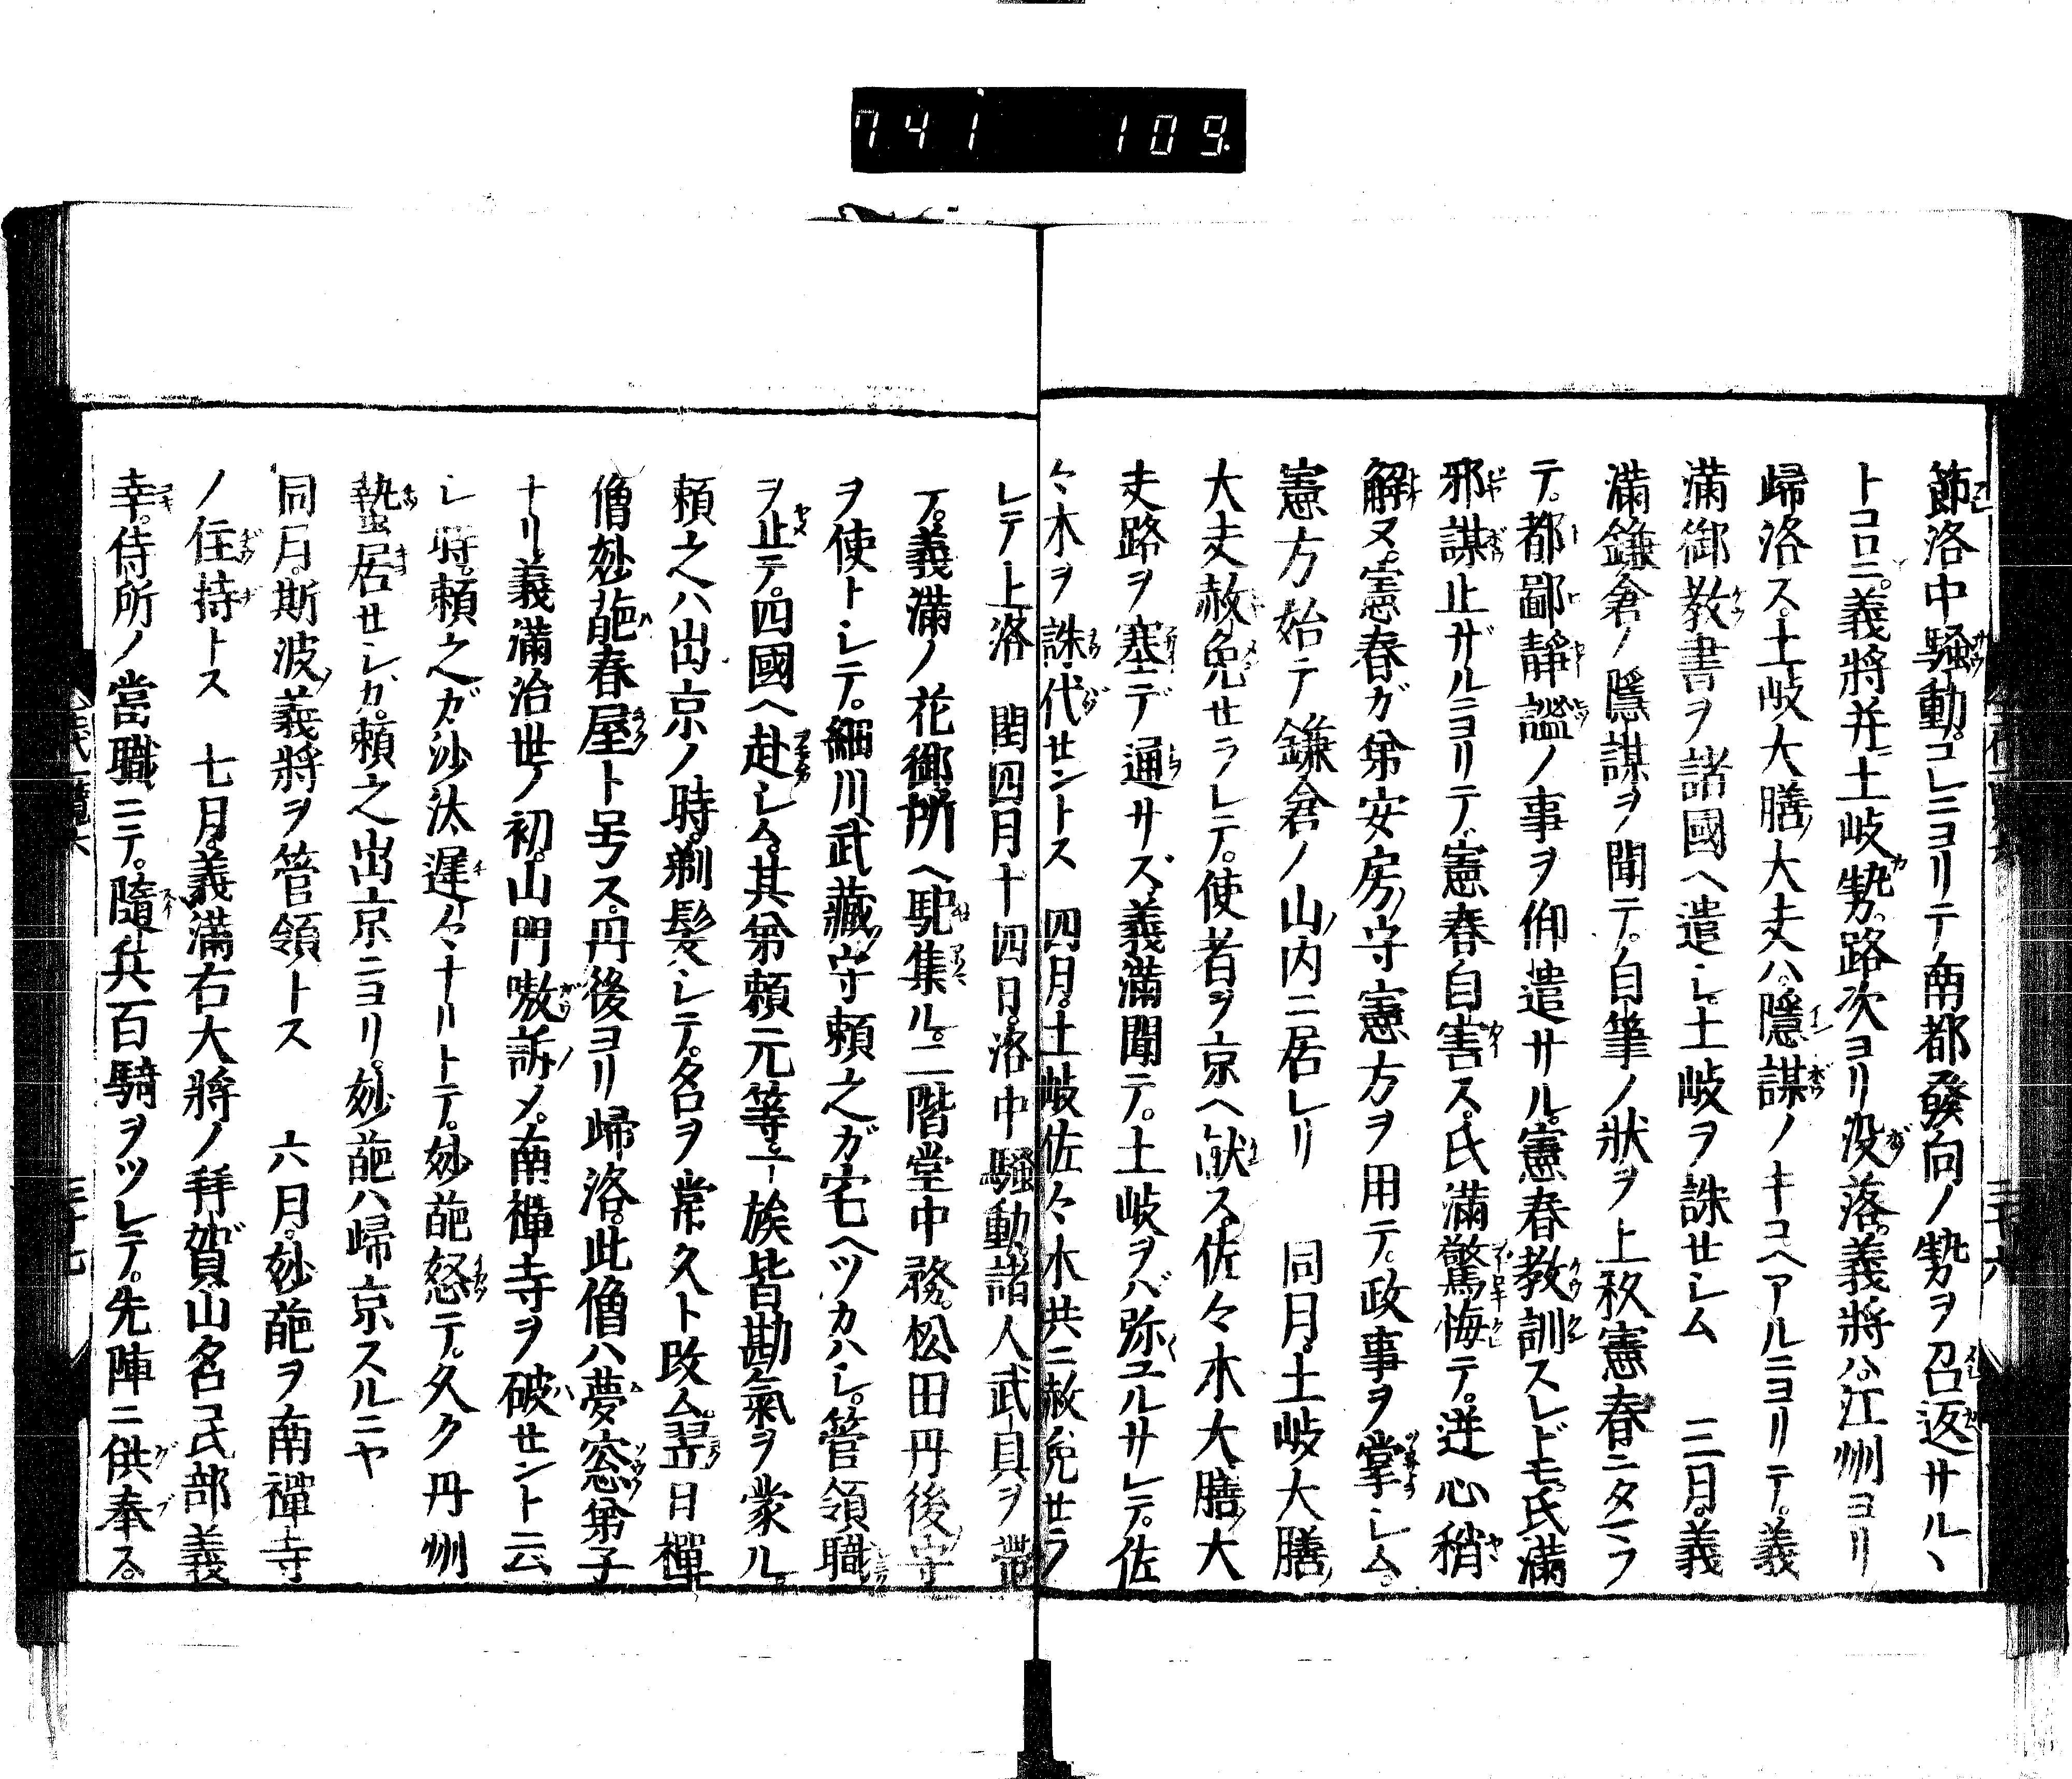 741 109.
節洛中騒動。コレニヨリテ南都發向ノ勢ヲ召返サルヽ
トコロニ。義將并ニ土岐勢。路次ヨリ没落。義將ハ江州ヨリ
歸洛ス。土岐大膳ノ大夫ハ。隱謀ノキコヘアルニヨリテ。義
滿御教書ヲ諸國ヘ遣シ。土岐ヲ誅セシム 三月。義
滿鎌倉ノ隱謀ヲ聞テ。自筆ノ狀ヲ上杦憲春ニタマフ
テ。都鄙靜謐ノ事ヲ仰遣サル。憲春教訓スレドモ。氏滿
邪謀止ザルニヨリテ。憲春自害ス。氏滿驚悔テ。逆心稍
解ヌ。憲春ガ弟安房ノ守憲方ヲ用テ。政事ヲ掌シム。
憲方始テ鎌倉ノ山ノ内ニ居レリ 同月。土岐大膳ノ
大夫赦免セラレテ。使者ヲ京ヘ献ス。佐々木大膳ノ大
夫路ヲ塞デ通サズ。義滿聞テ。土岐ヲバ弥ユルサレテ。佐
々木ヲ誅代セントス 四月。土岐佐々木共ニ赦免セラ
レテ上洛 閏四月十四日。洛中騒動。諸人武具ヲ帶
フ。義滿ノ花御所ヘ馳集ル。二階堂中務。松田丹後ノ守
ヲ使トシテ。細川武藏ノ守頼之ガ宅ヘツカハシ。管領職
ヲ止テ。四國ヘ赴シム。其弟頼元等一族皆勘氣ヲ蒙ル。
頼之ハ出京ノ時。剃髪シテ。名ヲ常久ト改ム。翌日禪
僧妙葩春屋ト号ス。丹後ヨリ歸洛。此僧ハ夢窓弟子
ナリ。義滿治世ノ初。山門嗷訴ノメ。南禪寺ヲ破セント云
シ時。頼之ガ沙汰遲々ナリトテ。妙葩怒テ。久ク丹州
蟄居セシガ。頼之出京ニヨリ。妙葩ハ歸京スルニヤ
同月。斯波義將ヲ管領トス 六月。妙葩ヲ南禪寺
ノ住持トス 七月。義滿右大將ノ拜賀。山名民部義
幸。侍所ノ當職ニテ。隨兵百騎ヲツレテ。先陣ニ供奉ス。